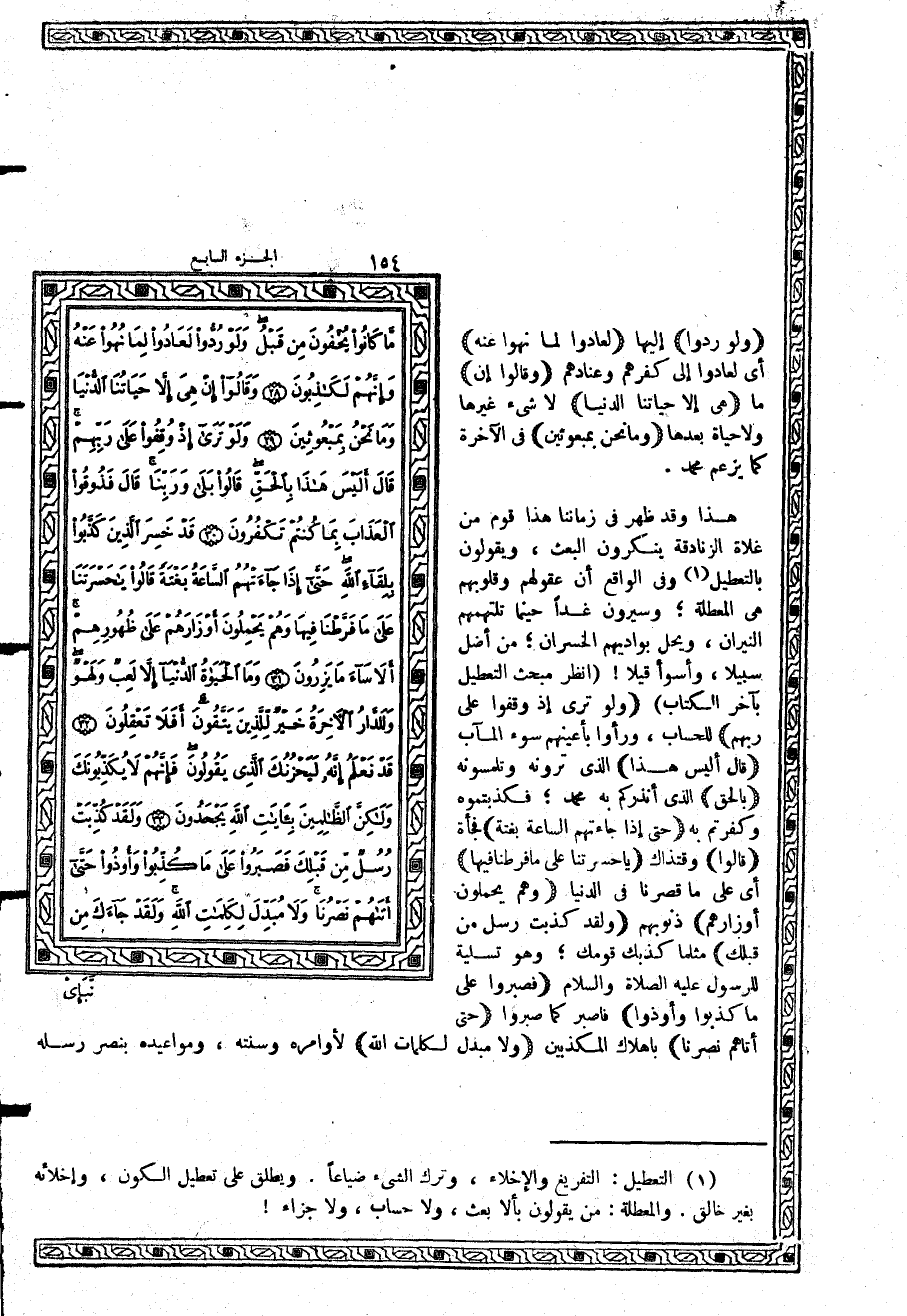 ١٥٤ الجزء السابع
مَّا كَانُوا۟ يُخْفُونَ مِن قَبْلُ ۖ وَلَوْ رُدُّوا۟ لَعَادُوا۟ لِمَا نُهُوا۟ عَنْهُ
وَإِنَّهُمْ لَكَـٰذِبُونَ ٢٨ وَقَالُوٓا۟ إِنْ هِىَ إِلَّا حَيَاتُنَا ٱلدُّنْيَا
وَمَا نَحْنُ بِمَبْعُوثِينَ ٢٩ وَلَوْ تَرَىٰٓ إِذْ وُقِفُوا۟ عَلَىٰ رَبِّهِمْ ۚ
قَالَ أَلَيْسَ هَـٰذَا بِٱلْحَقِّ ۖ قَالُوا۟ بَلَىٰ وَرَبِّنَا ۚ قَالَ فَذُوقُوا۟
ٱلْعَذَابَ بِمَا كُنتُمْ تَكْفُرُونَ ٣٠ قَدْ خَسِرَ ٱلَّذِينَ كَذَّبُوا۟
بِلِقَآءِ ٱللَّهِ ۖ حَتَّىٰٓ إِذَا جَآءَتْهُمُ ٱلسَّاعَةُ بَغْتَةً قَالُوا۟ يَـٰحَسْرَتَنَا
عَلَىٰ مَا فَرَّطْنَا فِيهَا وَهُمْ يَحْمِلُونَ أَوْزَارَهُمْ عَلَىٰ ظُهُورِهِمْ ۚ
أَلَا سَآءَ مَا يَزِرُونَ ٣١ وَمَا ٱلْحَيَوٰةُ ٱلدُّنْيَآ إِلَّا لَعِبٌ وَلَهْوٌ ۖ
وَلَلدَّارُ ٱلْـَٔاخِرَةُ خَيْرٌ لِّلَّذِينَ يَتَّقُونَ ۗ أَفَلَا تَعْقِلُونَ ٣٢
قَدْ نَعْلَمُ إِنَّهُۥ لَيَحْزُنُكَ ٱلَّذِى يَقُولُونَ ۖ فَإِنَّهُمْ لَا يُكَذِّبُونَكَ
وَلَـٰكِنَّ ٱلظَّـٰلِمِينَ بِـَٔايَـٰتِ ٱللَّهِ يَجْحَدُونَ ٣٣ وَلَقَدْ كُذِّبَتْ
رُسُلٌ مِّن قَبْلِكَ فَصَبَرُوا۟ عَلَىٰ مَا كُذِّبُوا۟ وَأُوذُوا۟ حَتَّىٰٓ
أَتَىٰهُمْ نَصْرُنَا ۚ وَلَا مُبَدِّلَ لِكَلِمَـٰتِ ٱللَّهِ ۚ وَلَقَدْ جَآءَكَ مِن
نَّبَإِى۟
(ولو ردوا) إليها (لعادوا لما نهوا عنه)
أى لعادوا إلى كفرهم وعنادهم (وقالوا إن)
ما (هى إلا حياتنا الدنيا) لا شىء غيرها
ولا حياة بعدها (وما نحن بمبعوثين) فى الآخرة
كما يزعم محمد .
هذا وقد ظهر فى زماننا هذا قوم من
غلاة الزنادقة ينكرون البعث ، ويقولون
بالتعطيل(١) وفى الواقع أن عقولهم وقلوبهم
هى المعطلة ؛ وسيرون غداً حينما تلتهمهم
النيران ، ويحل بواديهم الخسران ؛ من أضل
سبيلا ، وأسوأ قيلا ! (انظر مبحث التعطيل
بآخر الكتاب) (ولو ترى إذ وقفوا على
ربهم) للحساب ، ورأوا بأعينهم سوء المآب
(قال أليس هذا) الذى ترونه وتلمسونه
(بالحق) الذى أنذركم به محمد ؛ فكذبتموه
وكفرتم به (حتى إذا جاءتهم الساعة بغتة) فجأة
(قالوا) وقتذاك (ياحسرتنا على مافرطنا فيها)
أى على ما قصرنا فى الدنيا (وهم يحملون
أوزارهم) ذنوبهم (ولقد كذبت رسل من
قبلك) مثلما كذبك قومك ؛ وهو تسلية
للرسول عليه الصلاة والسلام (فصبروا على
ما كذبوا وأوذوا) فاصبر كما صبروا (حتى
أتاهم نصرنا) بإهلاك المكذبين (ولا مبدل لكلمات الله) لأوامره وسنته ، ومواعيده بنصر رسله
(١) التعطيل : التفريغ والإخلاء ، وترك الشىء ضياعاً . ويطلق على تعطيل الكون ، وإخلائه
بغير خالق . والمعطلة : من يقولون بألا بعث ، ولا حساب ، ولا جزاء !